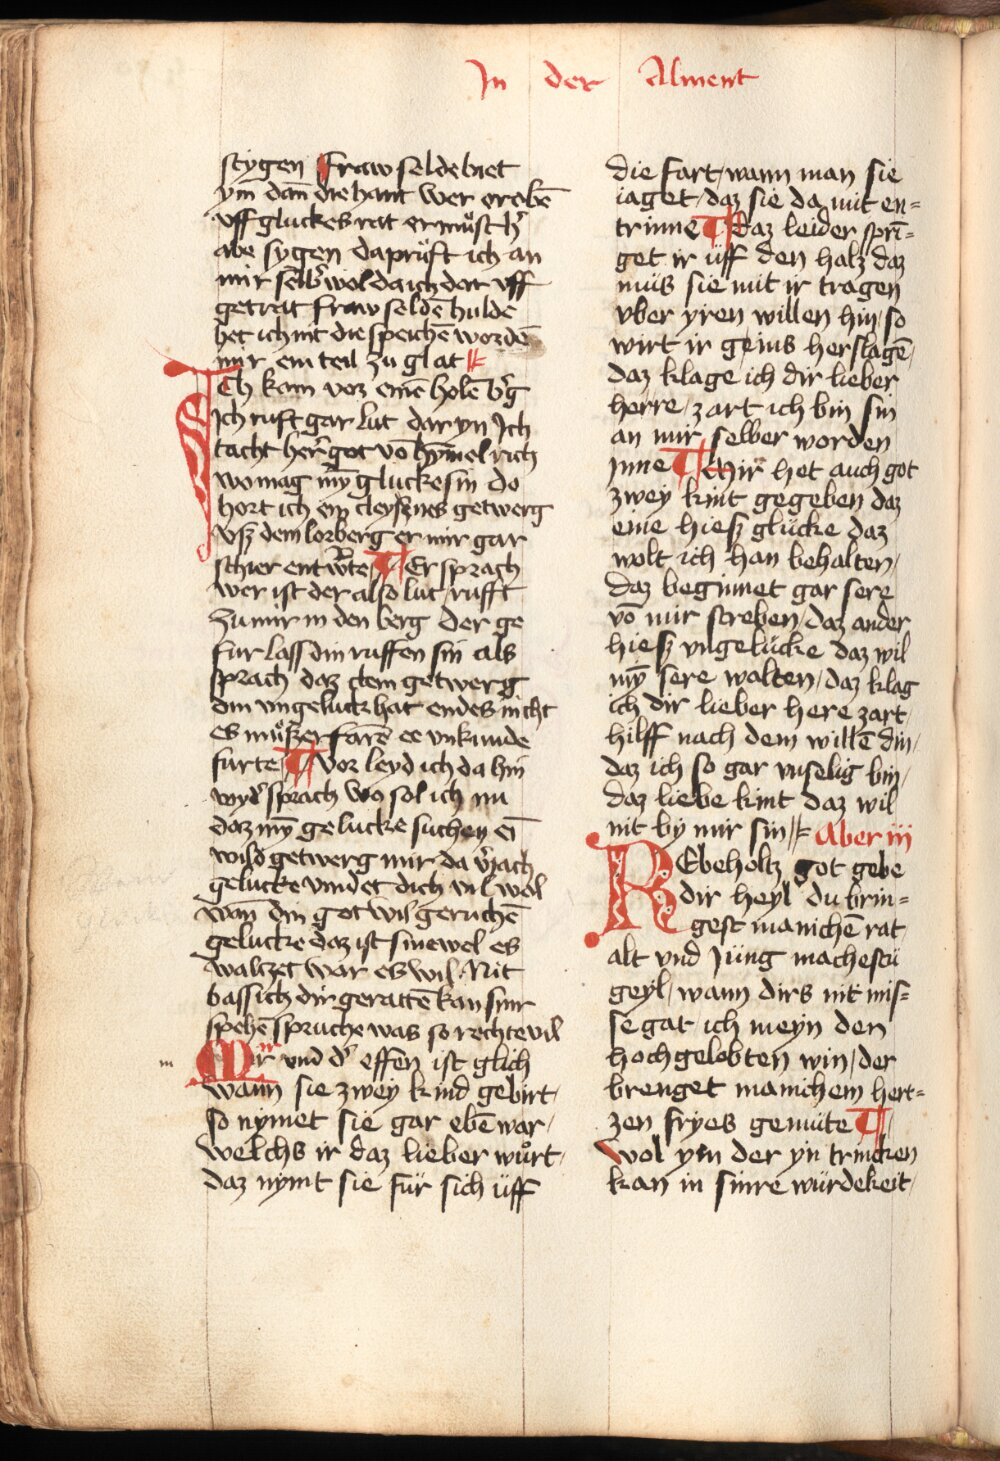 In der Alment
stygen Fraw selde biet
ym dan̄ die hant wer oroben̄
vff gluckes rat er muͦst h'
abe sygen da pruͤft ich an
mir selb' wol da ich dar vff
getrat fraw selden̄ hulde
het ich nit die speichen̄ worden̄
mir ein teil zu glat
Ich kam vor einen̄ holen̄ b'g
Ich ruft gar lut dar yn Ich
tacht her' got von̄ hymelrich
wo mag my̅ glucke sin do
hort ich ein cleyßnes getwerg
vß dem lorberg er mir gar
schier entw'te Er sprach
wer ist der also lut rufft
zu mir in den berg Der ge
fur lass din ruffen sin als
sprach daz clem getwerg
din vngeluck hat endes nicht
es muͦß erfaren̄ ee vnkunde
furte Vor leyd ich da hin
wyd' sprach wo sol ich nu
daz my̅ gelucke suchen ein̄
wild getwerg mir da v'iach
gelucke vindet dich vil wol
wan̄ din got wil geruchen̄
gelucke daz ist sinewel es
waltzet war es wil Nit
bass ich dir geratten̄ kan sinr
spehen̄ spruche was so rechte vil
Mir vnd d' effen ist glich
wann sie zwey kind gebirt
so nymet sie gar eben̄ war
welchs ir daz lieber wuͦrt
daz nymt sie für sich üff
die fart wann man sie
iaget daz sie da mit en=
trinne Daz leider sprī=
get ir üff den halz daz
muͦs sie mit ir tragen
vber yren willen hin so
wirt ir genus herslagen̄
daz klage ich dir lieber
herre zart ich bin sin
an mir selber worden
ynne Mir het auch got
zwey kint gegeben daz
eine hieß glücke daz
wolt ich han behalten
daz beginnet gar sere
vō mir streben daz ander
hieß vngelücke daz wil
my̅ sere walten daz klag
ich dir lieber here zart
hilff nach dem willen̄ din
daz ich so gar vnselig bin
daz liebe kint daz wil
nit by mir sin Aber iij
REbeholtz got gebe
dir heyl du brin=
gest manichen̄ rat
alt vnd Jüng machestu
geyl wann dirs nit mis=
se gat ich meyn den
hochgelobten win der
brenget manichem hert=
zen fryes gemüte
wol ym der yn trincken
kan in sinre würdekeit